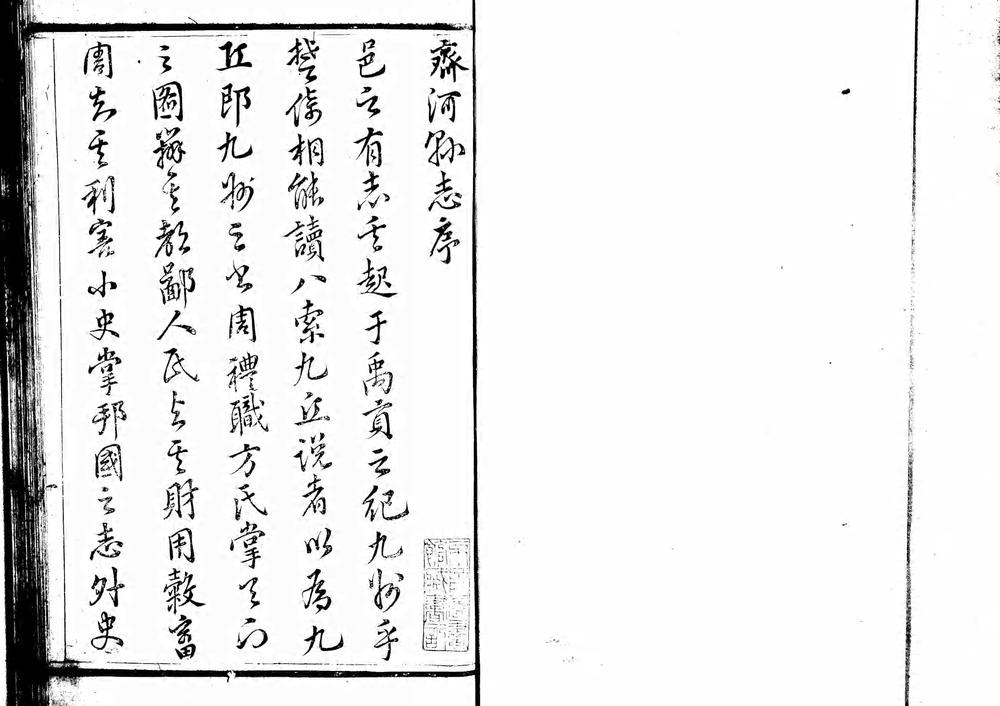 齊河縣志序
邑之有志其起于禹貢之紀九州乎
楚倚相能讀八索九丘說者以為九
丘即九州之書周禮職方氏掌天下
之圖辨其都鄙人民與其財用穀畜
周知其利害小史掌邦國之志外史